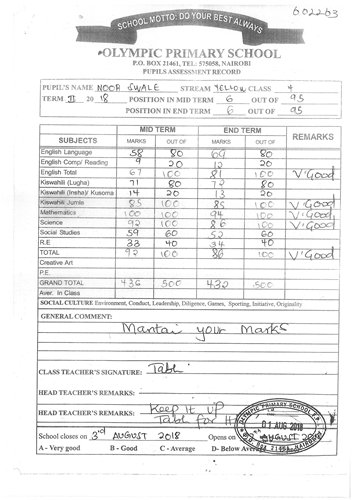 602263
SCHOOL MOTTO: DO YOUR BEST ALWAYS
OLYMPIC PRIMARY SCHOOL
P.O. BOX 21461, TEL: 575058, NAIROBI
PUPILS ASSESSMENT RECORD
PUPIL'S NAME NOOR SWALE STREAM YELLOW CLASS 4
TERM II 2018 POSITION IN MID TERM 6 OUT OF 95
POSITION IN END TERM 6 OUT OF 95
MID TERM END TERM REMARKS
SUBJECTS MARKS OUT OF MARKS OUT OF
English Language 58 80 69 80
English Comp/ Reading 9 20 12 20
English Total 67 100 81 100 V'Good
Kiswahili (Lugha) 71 80 72 80
Kiswahili (Insha)/ Kusoma 14 20 13 20
Kiswahili Jumla 85 100 85 100 V'Good
Mathematics 100 100 94 100 V'Good
Science 92 100 86 100 V'Good
Social Studies 59 60 52 60
R.E 33 40 34 40
TOTAL 92 100 86 100 V'Good
Creative Art
P.E.
GRAND TOTAL 436 500 432 500
Aver. In Class
SOCIAL CULTURE Environment, Conduct, Leadership, Diligence, Games, Sporting, Initiative, Originality
GENERAL COMMENT:
Mantai your Marks
CLASS TEACHER'S SIGNATURE:
HEAD TEACHER'S REMARKS:
HEAD TEACHER'S REMARKS: Keep it up
for H
OLYMPIC PRIMARY SCHOOL
01 AUG 2018
School closes on 3rd AUGUST 2018 Opens on AUGUST
A - Very good B - Good C - Average D- Below Average